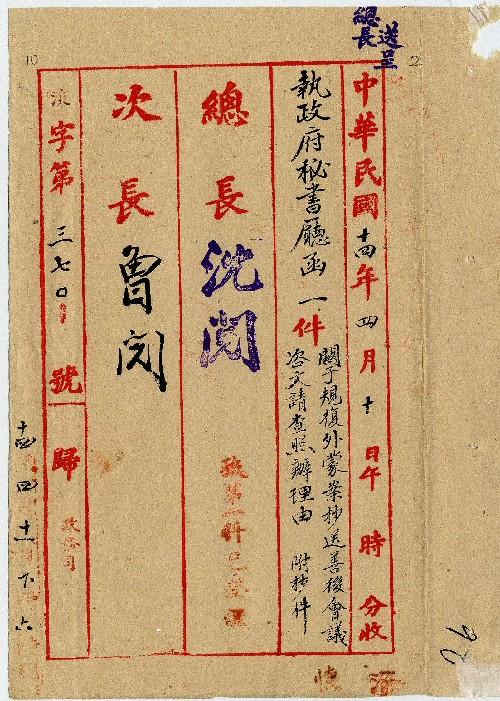 送呈
總長
中華民國十四年四月十日午 時 分收
執政府秘書廳函一件
關于規復外蒙案抄送善後會議
咨文請查照辦理由 附抄件
總長 沈閱
第一件已登
次長 曾閱
字第三七〇號
歸 政務司
十四 四 十一 下 六